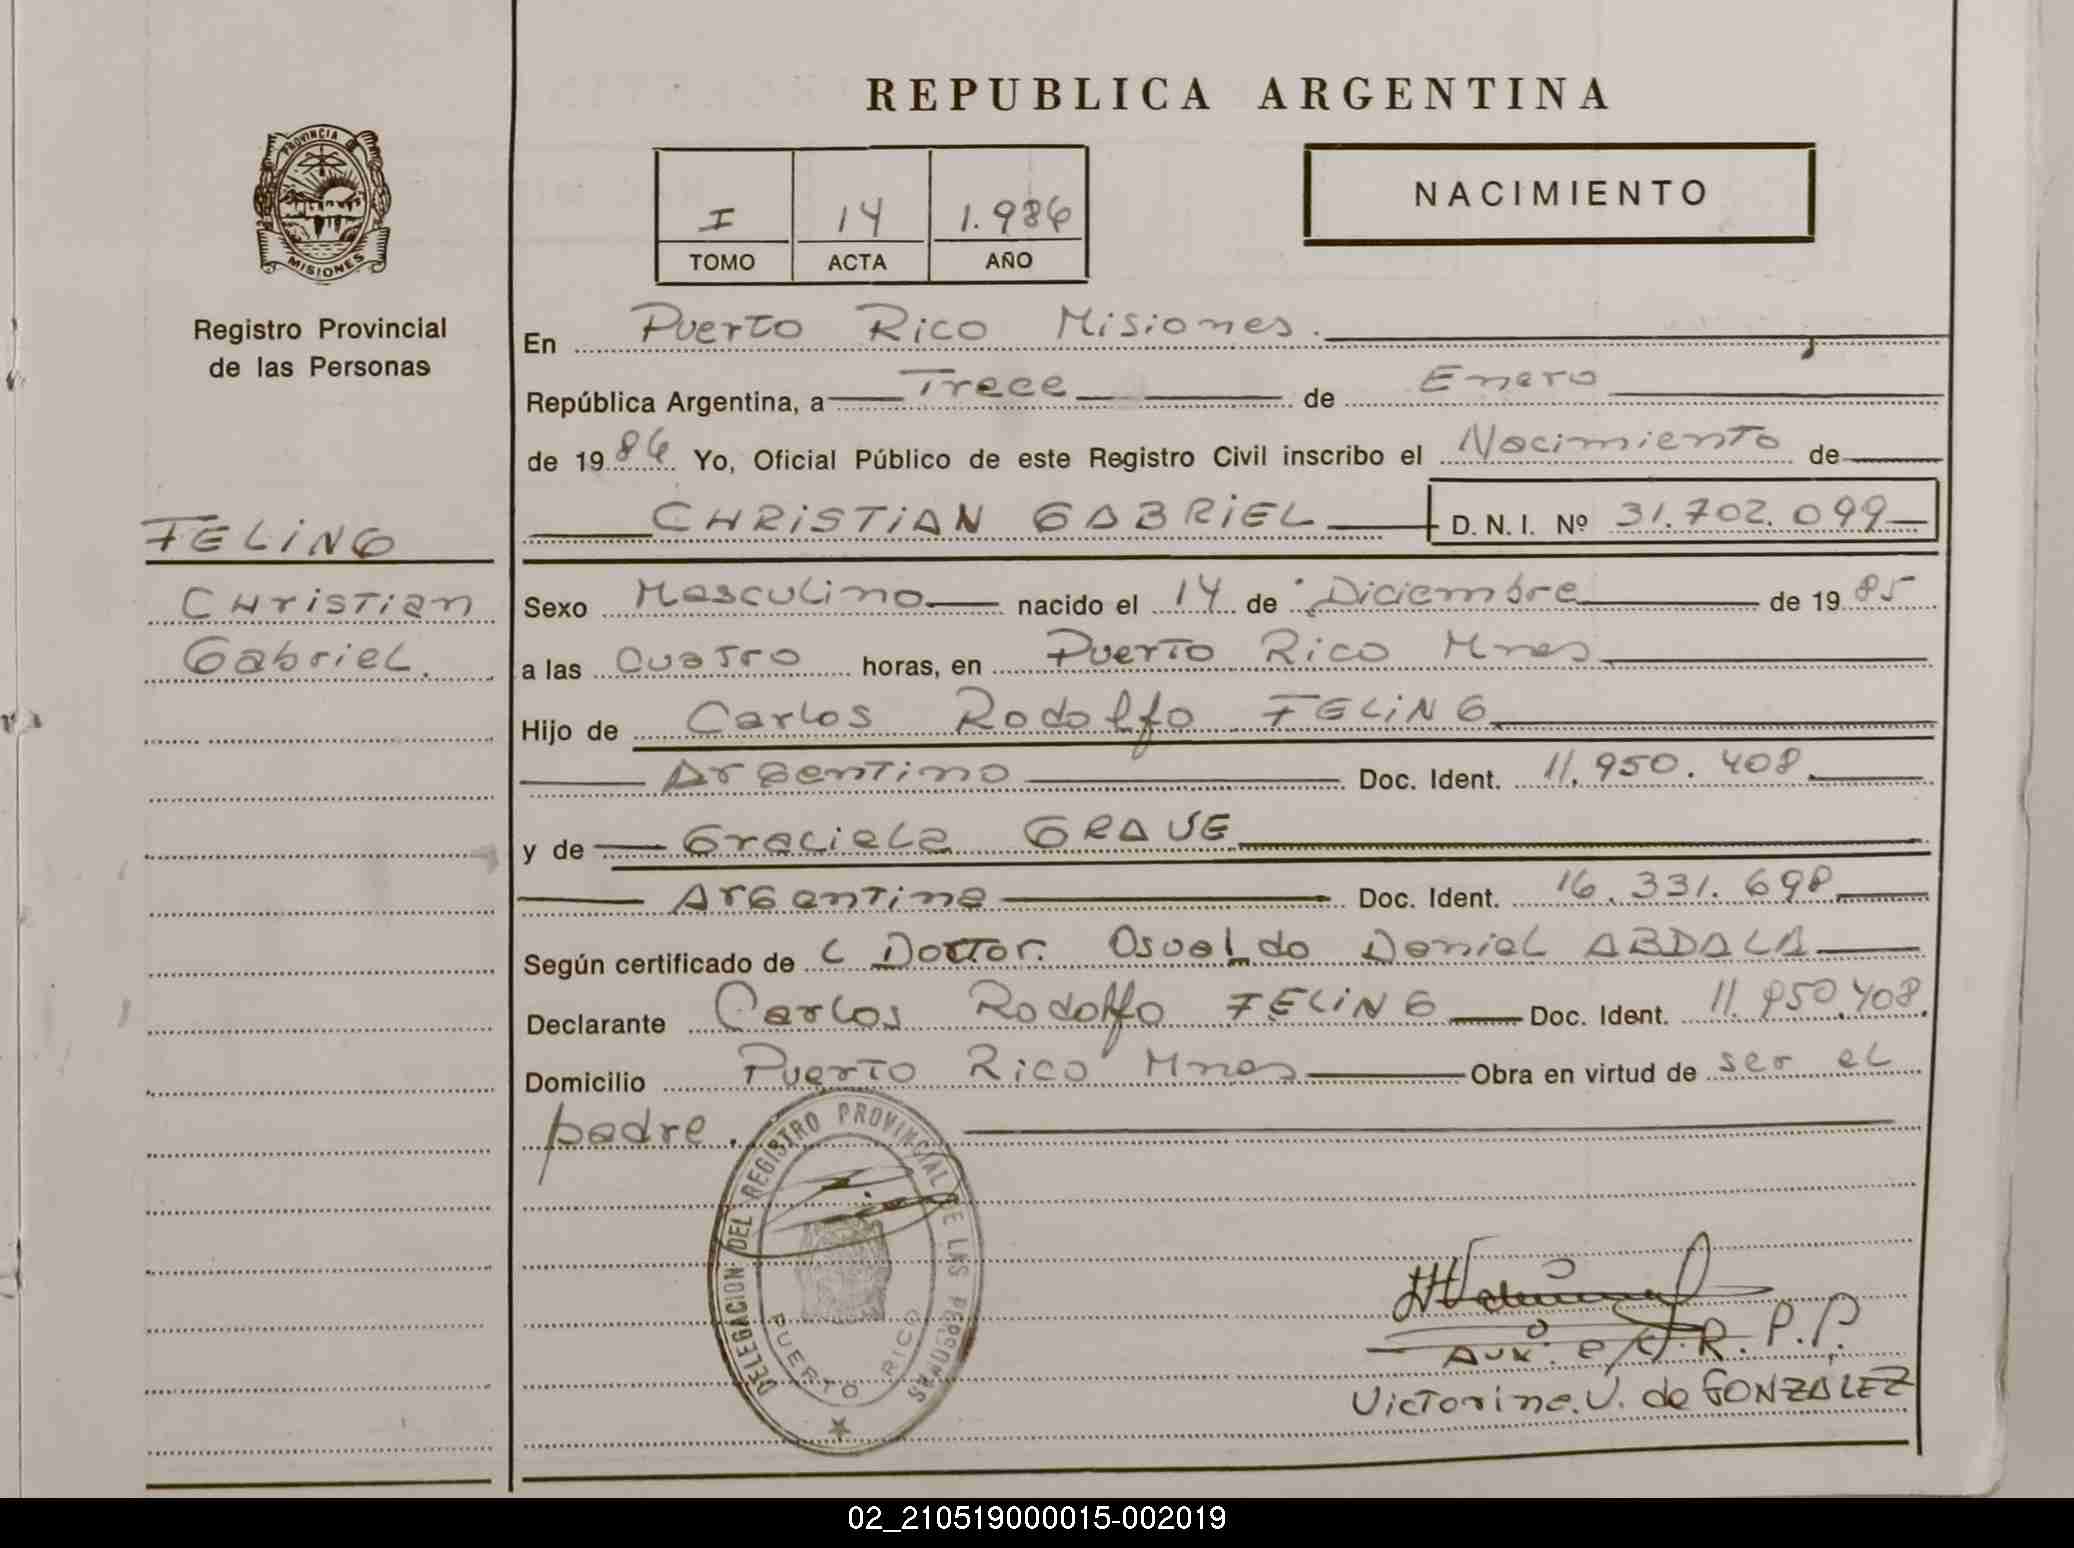 REPUBLICA ARGENTINA
PROVINCIA DE MISIONES
Registro Provincial
de las Personas
I 14 1.986
TOMO ACTA AÑO
NACIMIENTO
En Puerto Rico Misiones.
República Argentina, a Trece de Enero
de 1986 Yo, Oficial Público de este Registro Civil inscribo el Nacimiento de
CHRISTIAN GABRIEL D. N. I. Nº 31.702.099
FELING
Christian
Gabriel.
Sexo Masculino nacido el 14 de Diciembre de 1985
a las cuatro horas, en Puerto Rico Mnes
Hijo de Carlos Rodolfo FELING
Argentino Doc. Ident. 11.950.408
y de Graciela GRAVE
Argentina Doc. Ident. 16.331.698
Según certificado de l Doctor. Osvaldo Daniel ABDALA
Declarante Carlos Rodolfo FELING Doc. Ident. 11.950.408.
Domicilio Puerto Rico Mnes Obra en virtud de ser el
padre.
DELEGACION DEL REGISTRO PROVINCIAL DE LAS PERSONAS
PUERTO RICO
R. P. P.
Victorina. V. de GONZALEZ
02_210519000015-002019